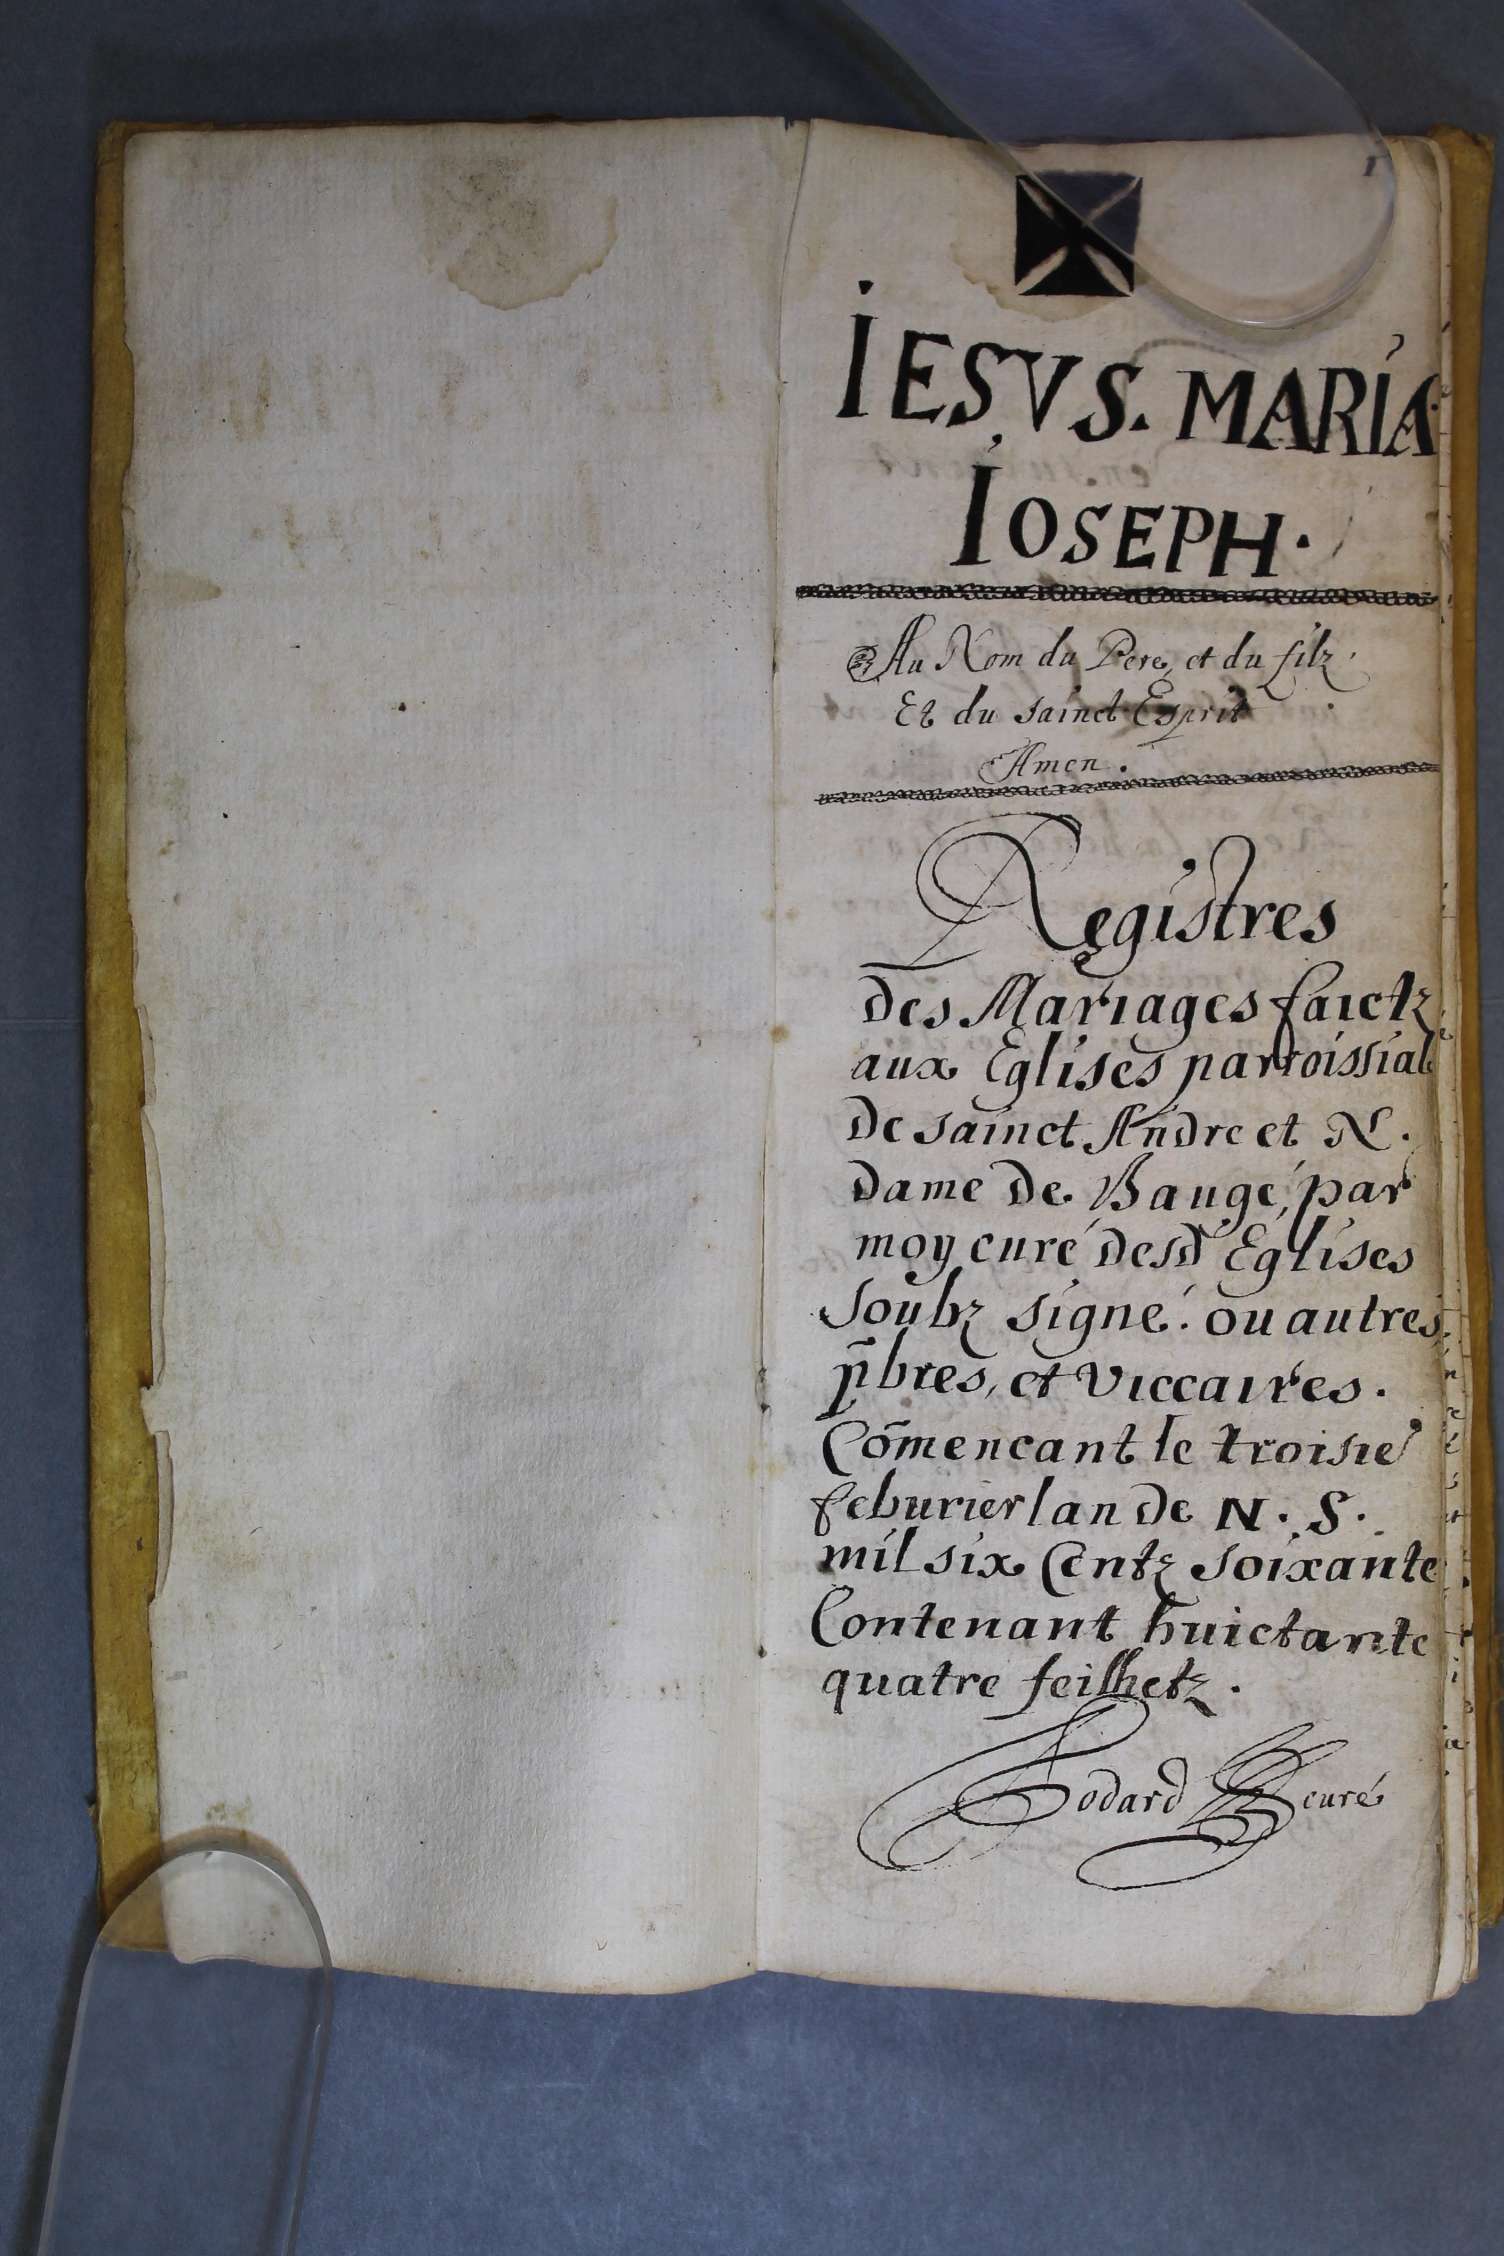 1
IESVS. MARIA
IOSEPH.
Au Nom du Pere, et du filz.
Et du sainct Esprit
Amen.
Registres
des Mariages faictz
aux Eglises parroissial
de sainct Andre et N.
dame de Baugé, par
moy curé desd Eglises
soubz signé. ou autres
p̄bres, et viccaires.
Cõmencant le troisie
feburier lan de N. S.
mil six Centz soixante
Contenant huictante
quatre feilhetz.
curé